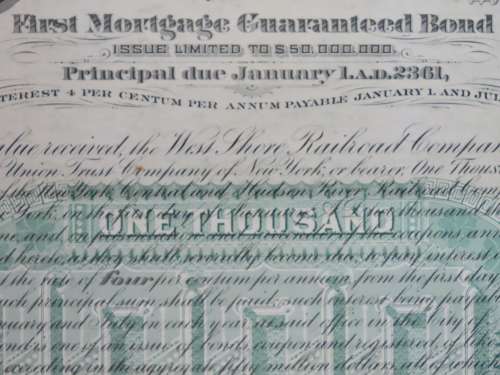 First Mortgage Guaranteed Bond
ISSUE LIMITED TO $50,000,000.
Principal due January 1. A.D. 2361,
TEREST 4 PER CENTUM PER ANNUM PAYABLE JANUARY 1. AND JUL
alue received, the West Shore Railroad Compan
Union Trust Company of New York, or bearer, One Thous
of the New York Central and Hudson River Railroad Com
York, in the
ONE THOUSAND
one, and
coupons and
ed herein, as they shall severally become due; to pay interest
the rate of four per centum per annum from the first day
such principal sum shall be paid, such interest being payab
anuary and July in each year at said office in the City of
and is one of an issue of bonds, coupon and registered, of like
according in the aggregate fifty million dollars, all of which